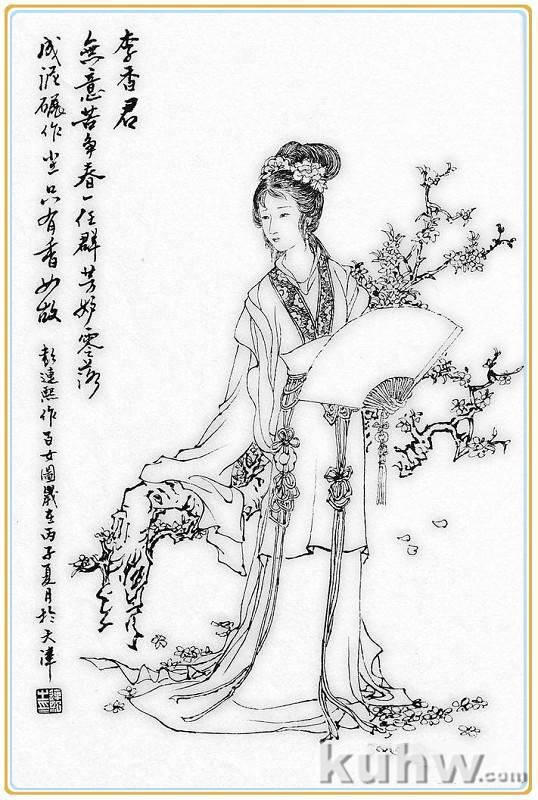 李香君
無意苦争春一任群芳妒零落
成泥碾作尘只有香如故
彭連熙作百女圖歲在丙子夏月於天津
kuhw.com